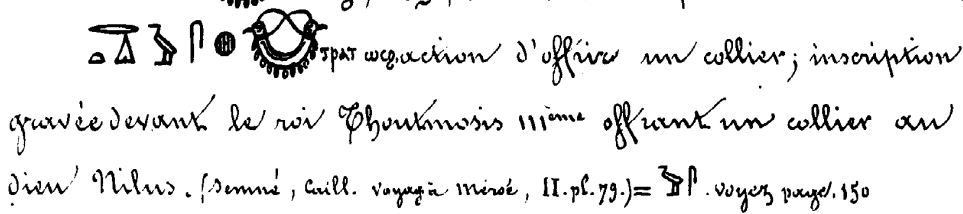 ⲧⲣⲁⲧ ⲱⲥϧ. action d'offrir un collier; inscription
gravée devant le roi Thoutmosis IIIème offrant un collier au
dieu Nilus. (Semné, Caill. voyag. à Méroé, II. pl. 79.) = voyez page. 150